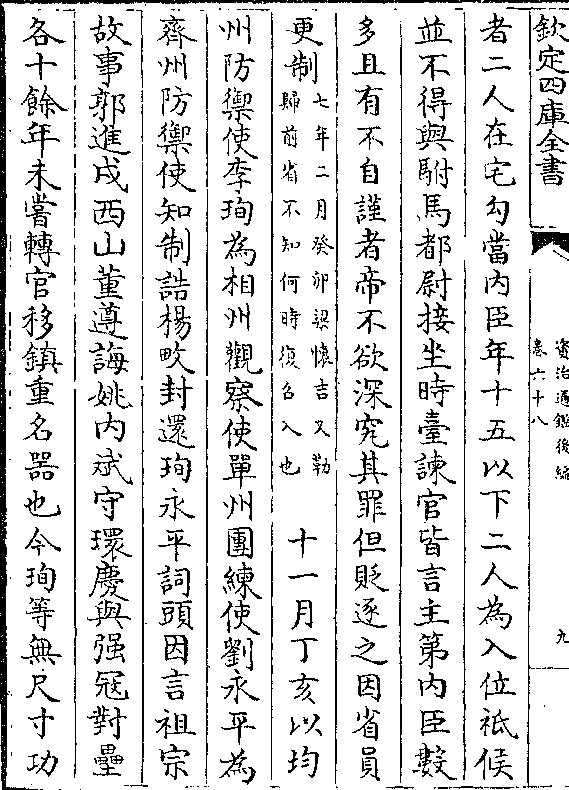 欽定四庫全書
資治通鑑後編
卷六十八
九
者二人在宅勾當内臣年十五以下二人為入位祗候
並不得與駙馬都尉接坐時臺諫官皆言主第内臣數
多且有不自謹者帝不欲深究其罪但貶逐之因省員
更制
七年二月癸卯梁懷吉又勒
歸前省不知何時復召入也
十一月丁亥以均
州防禦使李珣為相州觀察使單州團練使劉永平為
齊州防禦使知制誥楊畋封還珣永平詞頭因言祖宗
故事郭進戍西山董遵誨姚内斌守環慶與强冦對壘
各十餘年未嘗轉官移鎮重名器也今珣等無尺寸功